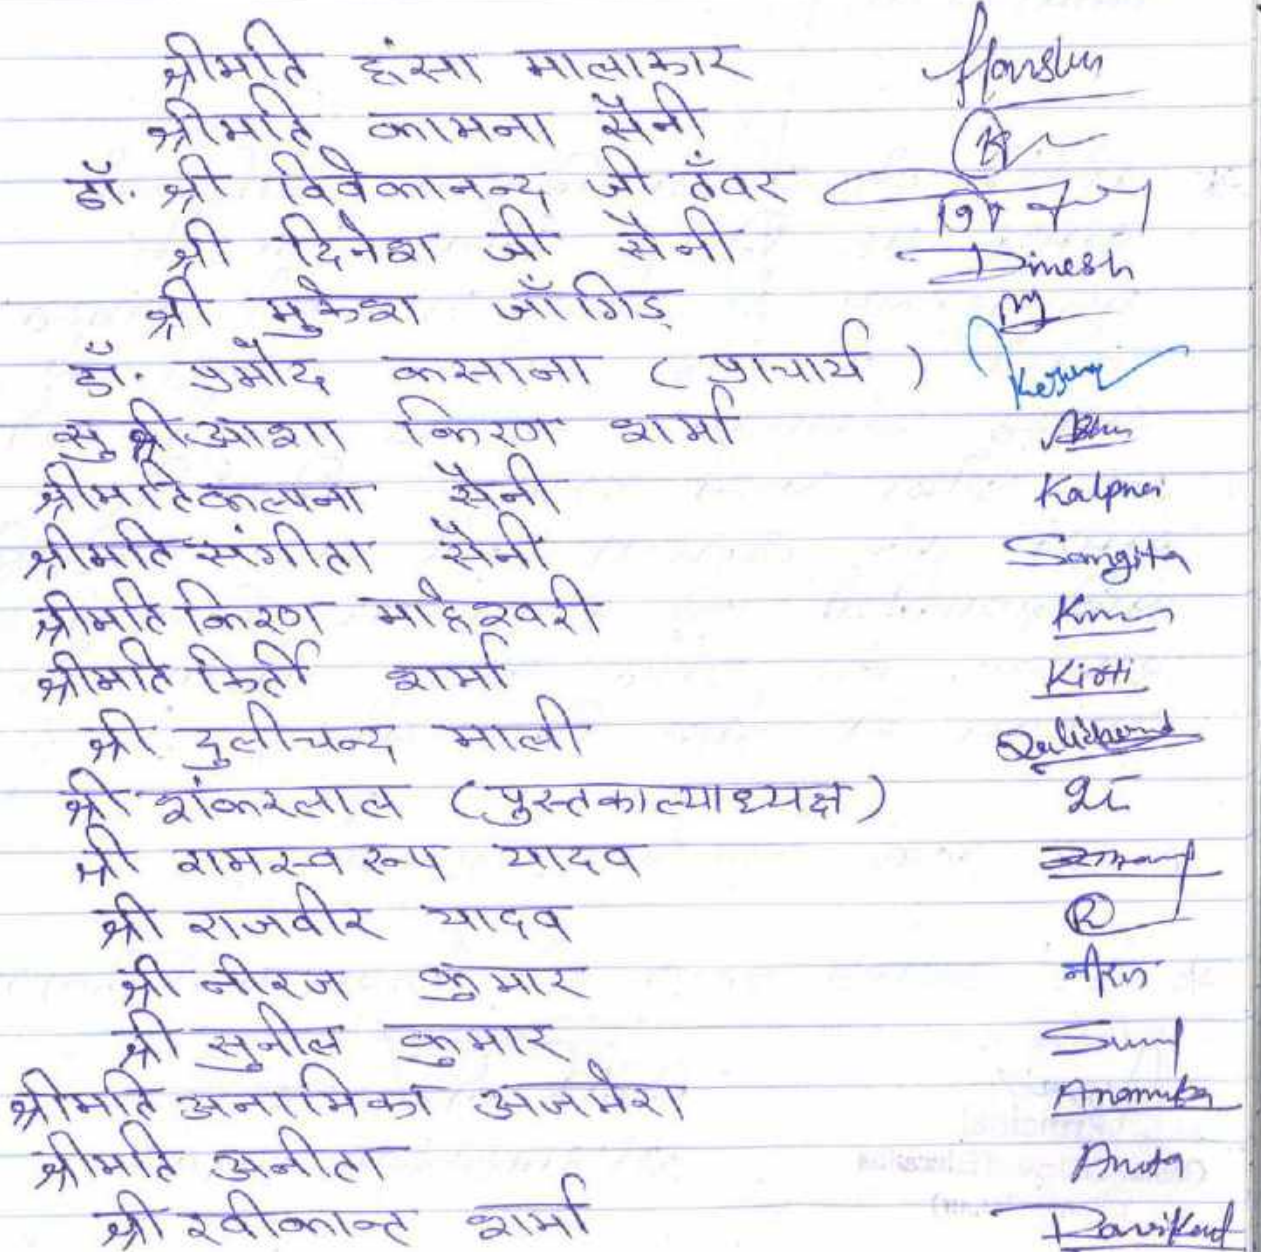 श्रीमति हंसा मालाकार
श्रीमति कामना सैनी
डॉ. श्री विवेकानन्द जी तँवर
श्री दिनेश जी सैनी Dinesh
श्री मुकेश जाँगिड़ M
डॉ. प्रमोद कसाना (प्राचार्य)
सुश्री आशा किरण शर्मा
श्रीमति कल्पना सैनी Kalpna
श्रीमति संगीता सैनी Sangita
श्रीमति किरण माहेश्वरी
श्रीमति किर्ती शर्मा Kirti
श्री दुलीचन्द माली Dulichand
श्री शंकरलाल (पुस्तकाल्याध्यक्ष)
श्री रामस्वरूप यादव
श्री राजवीर यादव R
श्री नीरज कुमार नीरज
श्री सुनील कुमार
श्रीमति अनामिका अजमेरा Anamika
श्रीमति अनीता Anita
श्री रवीकान्त शर्मा Ravikant